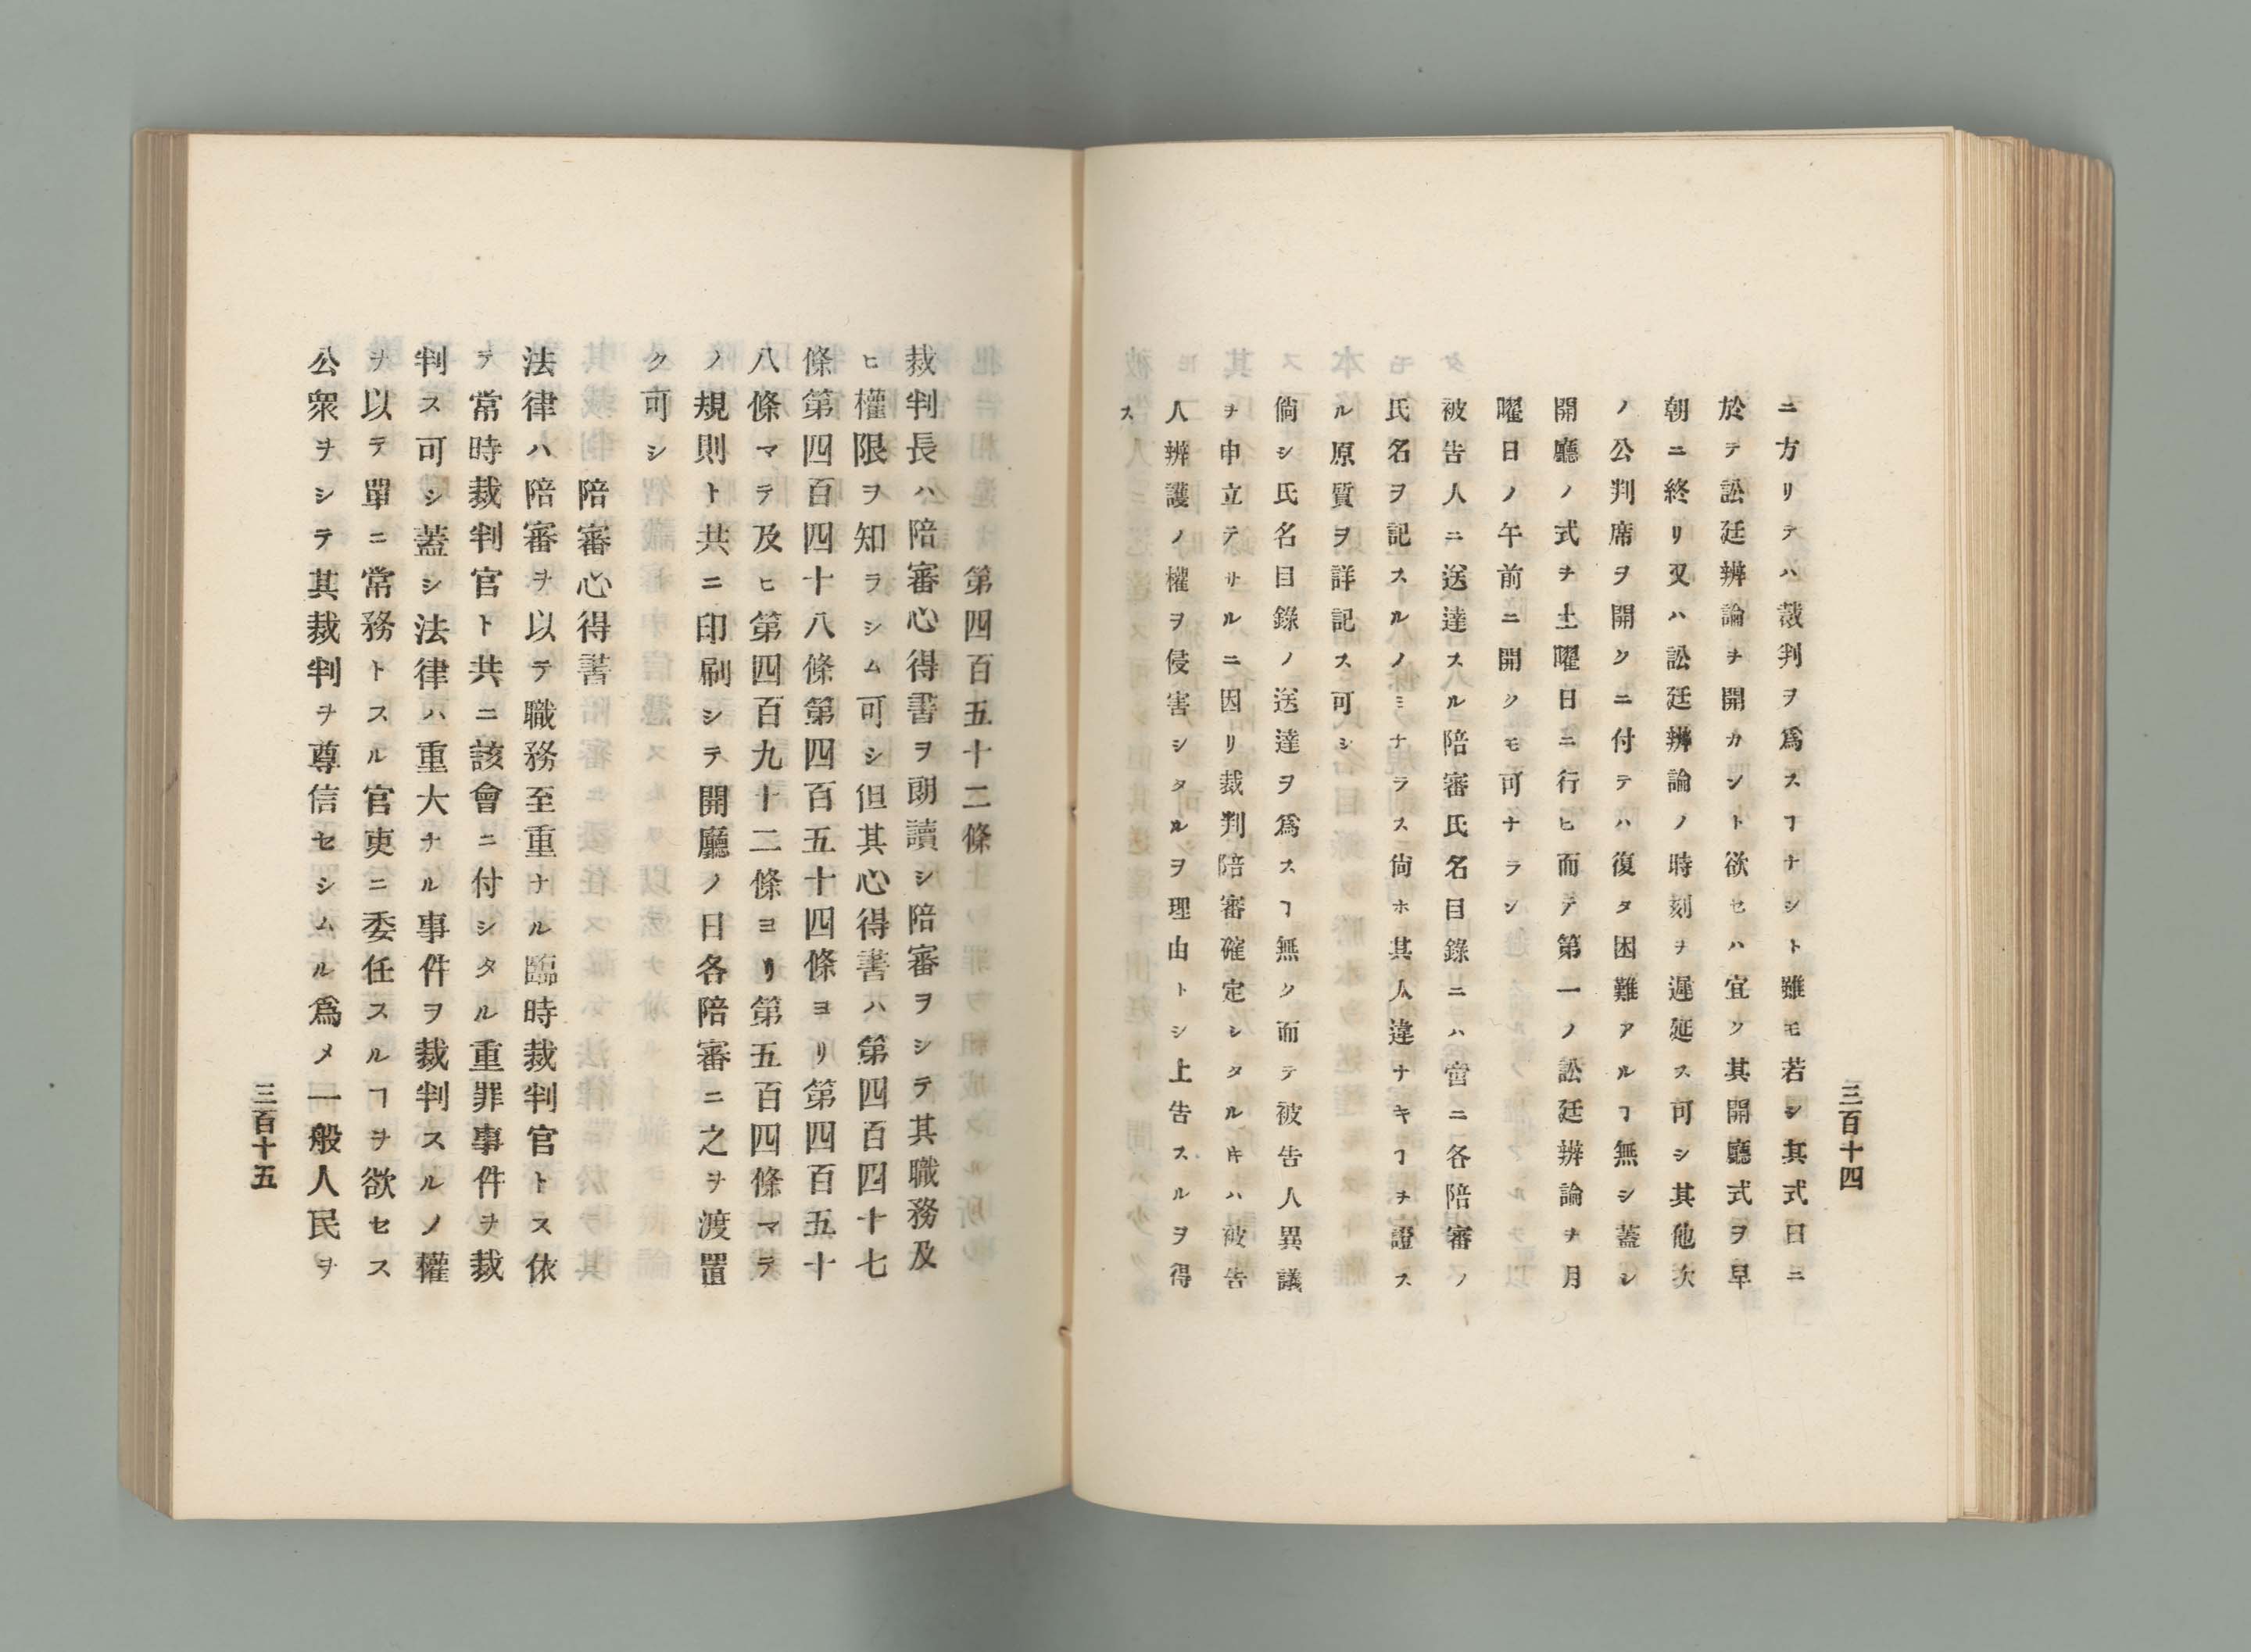 三百十四
ニ方リテハ裁判ヲ爲スヿナシト雖モ若シ其式日ニ
於テ訟廷辨論ヲ開カント欲セハ宜ク其開廳式ヲ早
朝ニ終リ又ハ訟廷辨論ノ時刻ヲ遲延ス可シ其他次
ノ公判席ヲ開クニ付テハ復タ困難アルヿ無シ蓋シ
開廳ノ式ヲ土曜日ニ行ヒ而テ第一ノ訟廷辨論ヲ月
曜日ノ午前ニ開クモ可ナラン
被告人ニ送達スル陪審氏名目錄ニハ啻ニ各陪審ノ
氏名ヲ記スルノミナラス尙ホ其人違ナキヿヲ證ス
ル原質ヲ詳記ス可シ
倘シ氏名目錄ノ送達ヲ爲スヿ無ク而テ被告人異議
ヲ申立テサルニ因リ裁判陪審確定シタルキハ被告
人辨護ノ權ヲ侵害シタルヲ理由トシ上告スルヲ得
ス
第四百五十二條
裁判長ハ陪審心得書ヲ朗讀シ陪審ヲシテ其職務及
ヒ權限ヲ知ラシム可シ但其心得書ハ第四百四十七
條第四百四十八條第四百五十四條ヨリ第四百五十
八條マテ及ヒ第四百九十二條ヨリ第五百四條マテ
ノ規則ト共ニ印刷シテ開廳ノ日各陪審ニ之ヲ渡置
ク可シ
陪審心得書
法律ハ陪審ヲ以テ職務至重ナル臨時裁判官トス依
テ常時裁判官ト共ニ該會ニ付シタル重罪事件ヲ裁
判ス可シ蓋シ法律ハ重大ナル事件ヲ裁判スルノ權
ヲ以テ單ニ常務トスル官吏ニ委任スルヿヲ欲セス
公衆ヲシテ其裁判ヲ尊信セシムル爲メ一般人民ヲ
三百十五